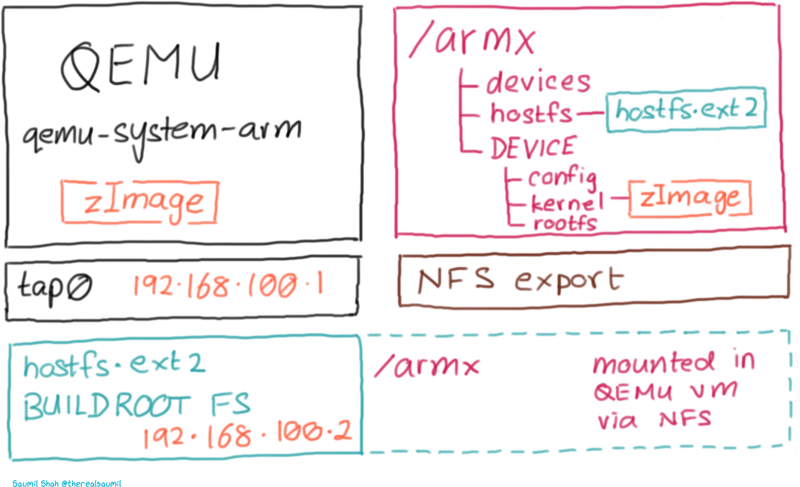 QEMU
qemu-system-arm
zImage
/armx
devices
hostfs hostfs.ext2
DEVICE
config
kernel zImage
rootfs
tap0 192.168.100.1
NFS export
hostfs.ext2
BUILDROOT FS
192.168.100.2
/armx
mounted in
QEMU VM
via NFS
Saumil Shah @therealsaumil